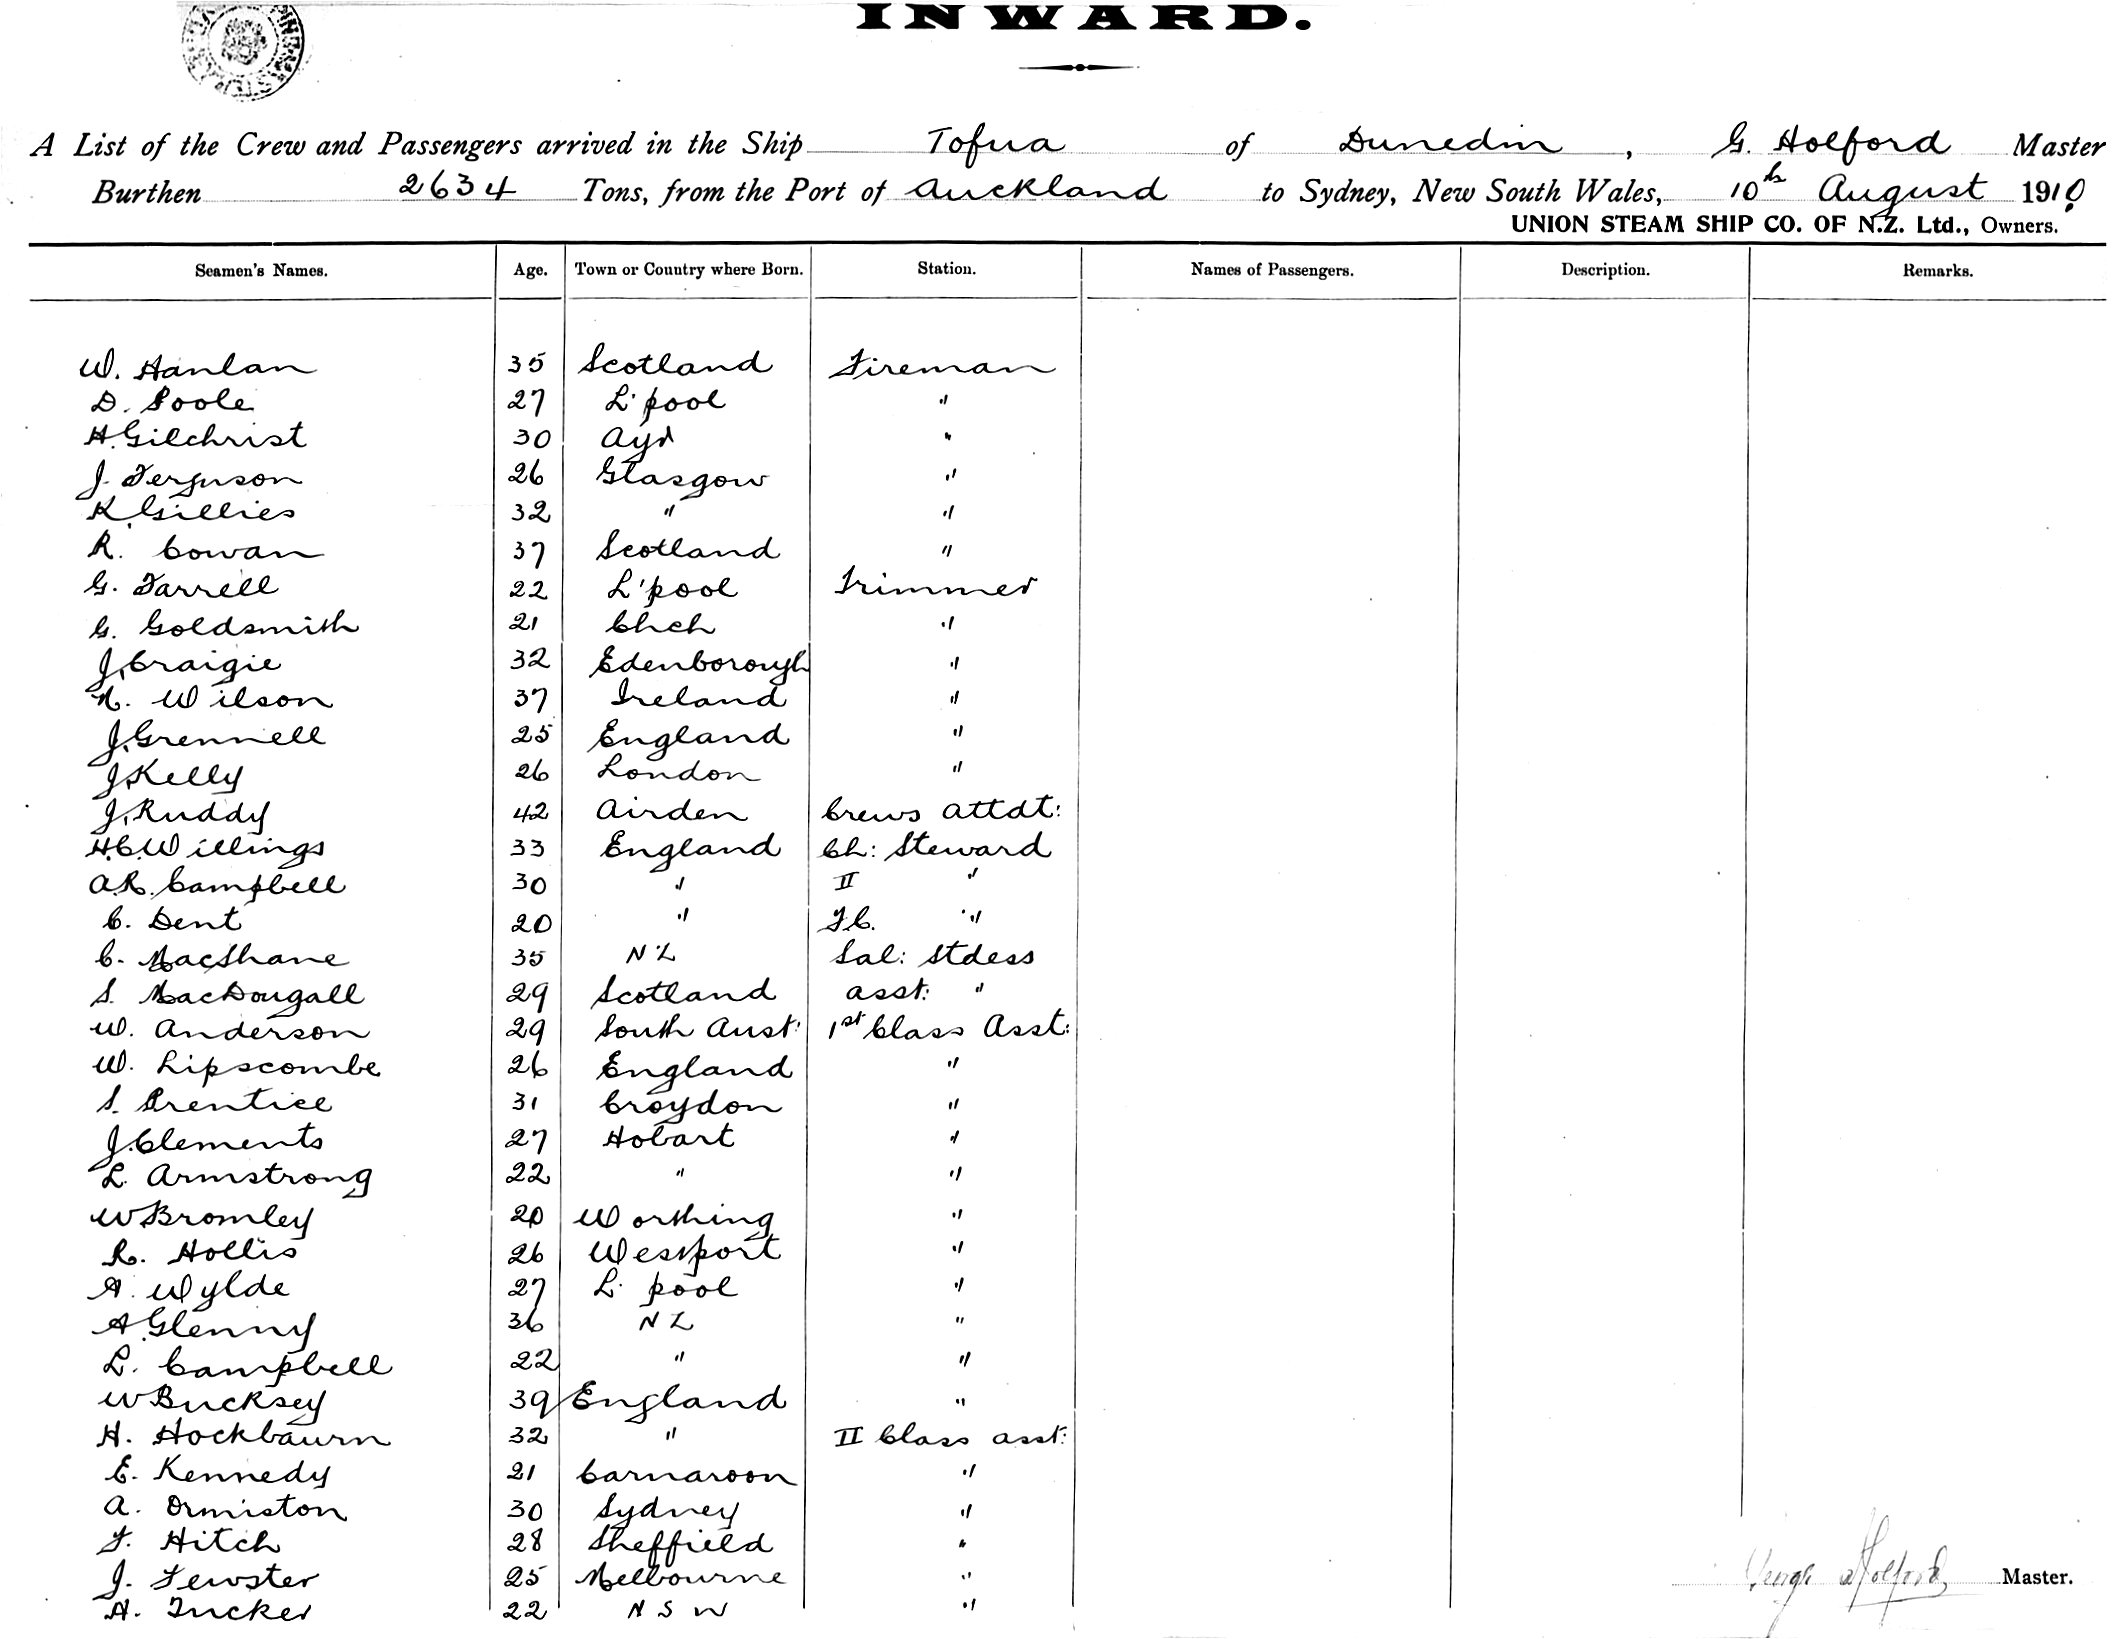 INWARD.
A List of the Crew and Passengers arrived in the Ship Tofua of Dunedin, G. Holford Master
Burthen 2634 Tons, from the Port of Auckland to Sydney, New South Wales, 10th August 1910
UNION STEAM SHIP CO. OF N.Z. Ltd., Owners.
Seamen's Names. Age. Town or Country where Born. Station. Names of Passengers. Description. Remarks.
W. Hanlan 35 Scotland Fireman
D. Poole 27 L'pool "
H. Gilchrist 30 Ayr "
J. Ferguson 26 Glasgow "
K. Gillies 32 " "
R. Cowan 37 Scotland "
G. Farrell 22 L'pool Trimmer
G. Goldsmith 21 Chch "
J. Craigie 32 Edenborough "
N. Wilson 37 Ireland "
J. Grennell 25 England "
J. Kelly 26 London "
J. Ruddy 42 Airden Crews Attdt:
H.C. Willings 33 England Ch: Steward
A.R. Campbell 30 " II "
C. Dent 20 " F.C. "
C. MacShane 35 NZ Sal: Stdess
S. MacDougall 29 Scotland asst: "
W. Anderson 29 South Aust: 1st Class Asst:
W. Lipscombe 26 England "
S. Prentice 31 Croydon "
J. Clements 27 Hobart "
L. Armstrong 22 " "
W Bromley 20 Worthing "
R. Hollis 26 Westport "
A. Wylde 27 L'pool "
A. Glenny 36 NZ "
L. Campbell 22 " "
W Bucksey 39 England "
H. Hockbaurn 32 " II Class asst:
E. Kennedy 21 Carnaroon "
A. Ormiston 30 Sydney "
F. Hitch 28 Sheffield "
J. Fewster 25 Melbourne "
A. Tucker 22 NSW "
George Holford Master.